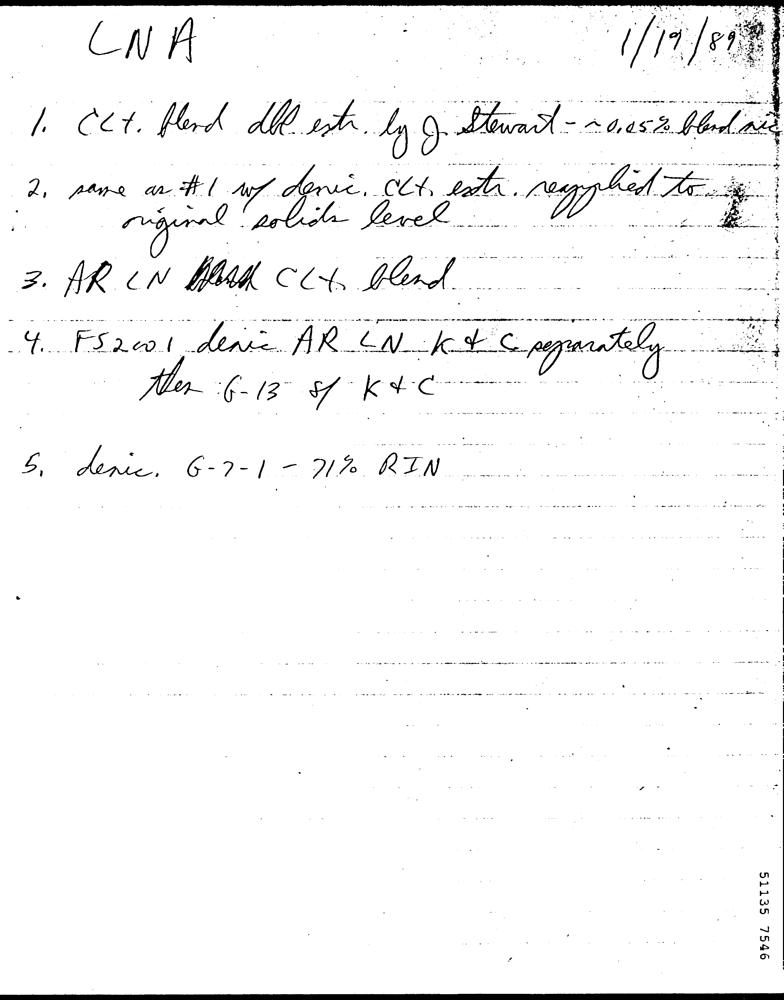 LNA 1/19/89
1. CLt. blend dbl. extr. by J. Stewart - ~0.05% blend nic
2. same as #1 w/ denic. CLt. extr. reapplied to
original solids level
3. AR LN CLt. blend
4. FS2001 denic AR LN K & C separately
then G-13 K & C
5. denic. G-7-1 - 71% RIN
51135 7546